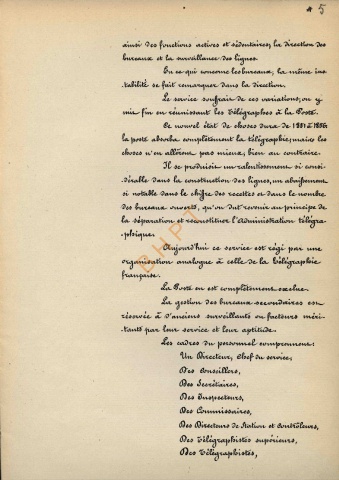 5
ainsi des fonctions actives et sédentaires, la direction des
bureaux et la surveillance des lignes.
En ce qui concerne les bureaux, la même ins-
tabilité se fait remarquer dans la direction.
Le service souffrait de ces variations, on y
mit fin en réunissant les Télégraphes à la Poste.
Ce nouvel état de choses dura de 1881 à 1886
la poste absorba complètement la télégraphie; mais les
choses n'en allèrent pas mieux, bien au contraire.
Il se produisit un ralentissement si consi-
dérable dans la construction des lignes, un abaissement
si notable dans le chiffre des recettes et dans le nombre
des bureaux ouverts, qu'on dut revenir au principe de
la séparation et reconstituer l'Administration télégra-
phique.
Aujourd'hui ce service est régi par une
organisation analogue à celle de la Télégraphie
française.
La Poste en est complètement exclue.
La gestion des bureaux secondaires est
réservée à d'anciens surveillants ou facteurs méri-
tants par leur service et leur aptitude.
Les cadres du personnel comprennent:
Un Directeur, Chef du service,
Des Conseillers,
Des Secrétaires,
Des Inspecteurs,
Des Commissaires,
Des Directeurs de Station et Contrôleurs,
Des Télégraphistes supérieurs,
Des Télégraphistes,
BHPT